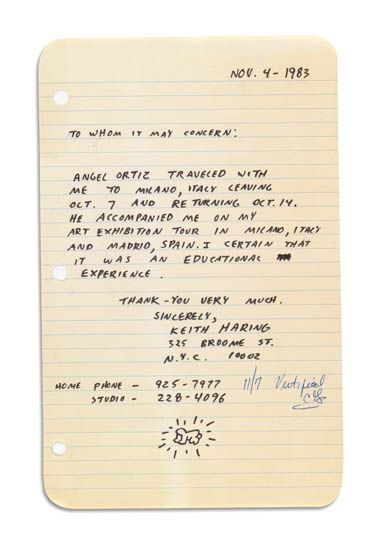 NOV. 4 - 1983
TO WHOM IT MAY CONCERN:
ANGEL ORTIZ TRAVELED WITH
ME TO MILANO, ITALY LEAVING
OCT. 7 AND RETURNING OCT. 14.
HE ACCOMPANIED ME ON MY
ART EXHIBITION TOUR IN MILANO, ITALY
AND MADRID, SPAIN. I CERTAIN THAT
IT WAS AN EDUCATIONAL
EXPERIENCE.
THANK-YOU VERY MUCH.
SINCERELY,
KEITH HARING
325 BROOME ST.
N.Y.C. 10002
HOME PHONE - 925-7977 11/7
STUDIO - 228-4096